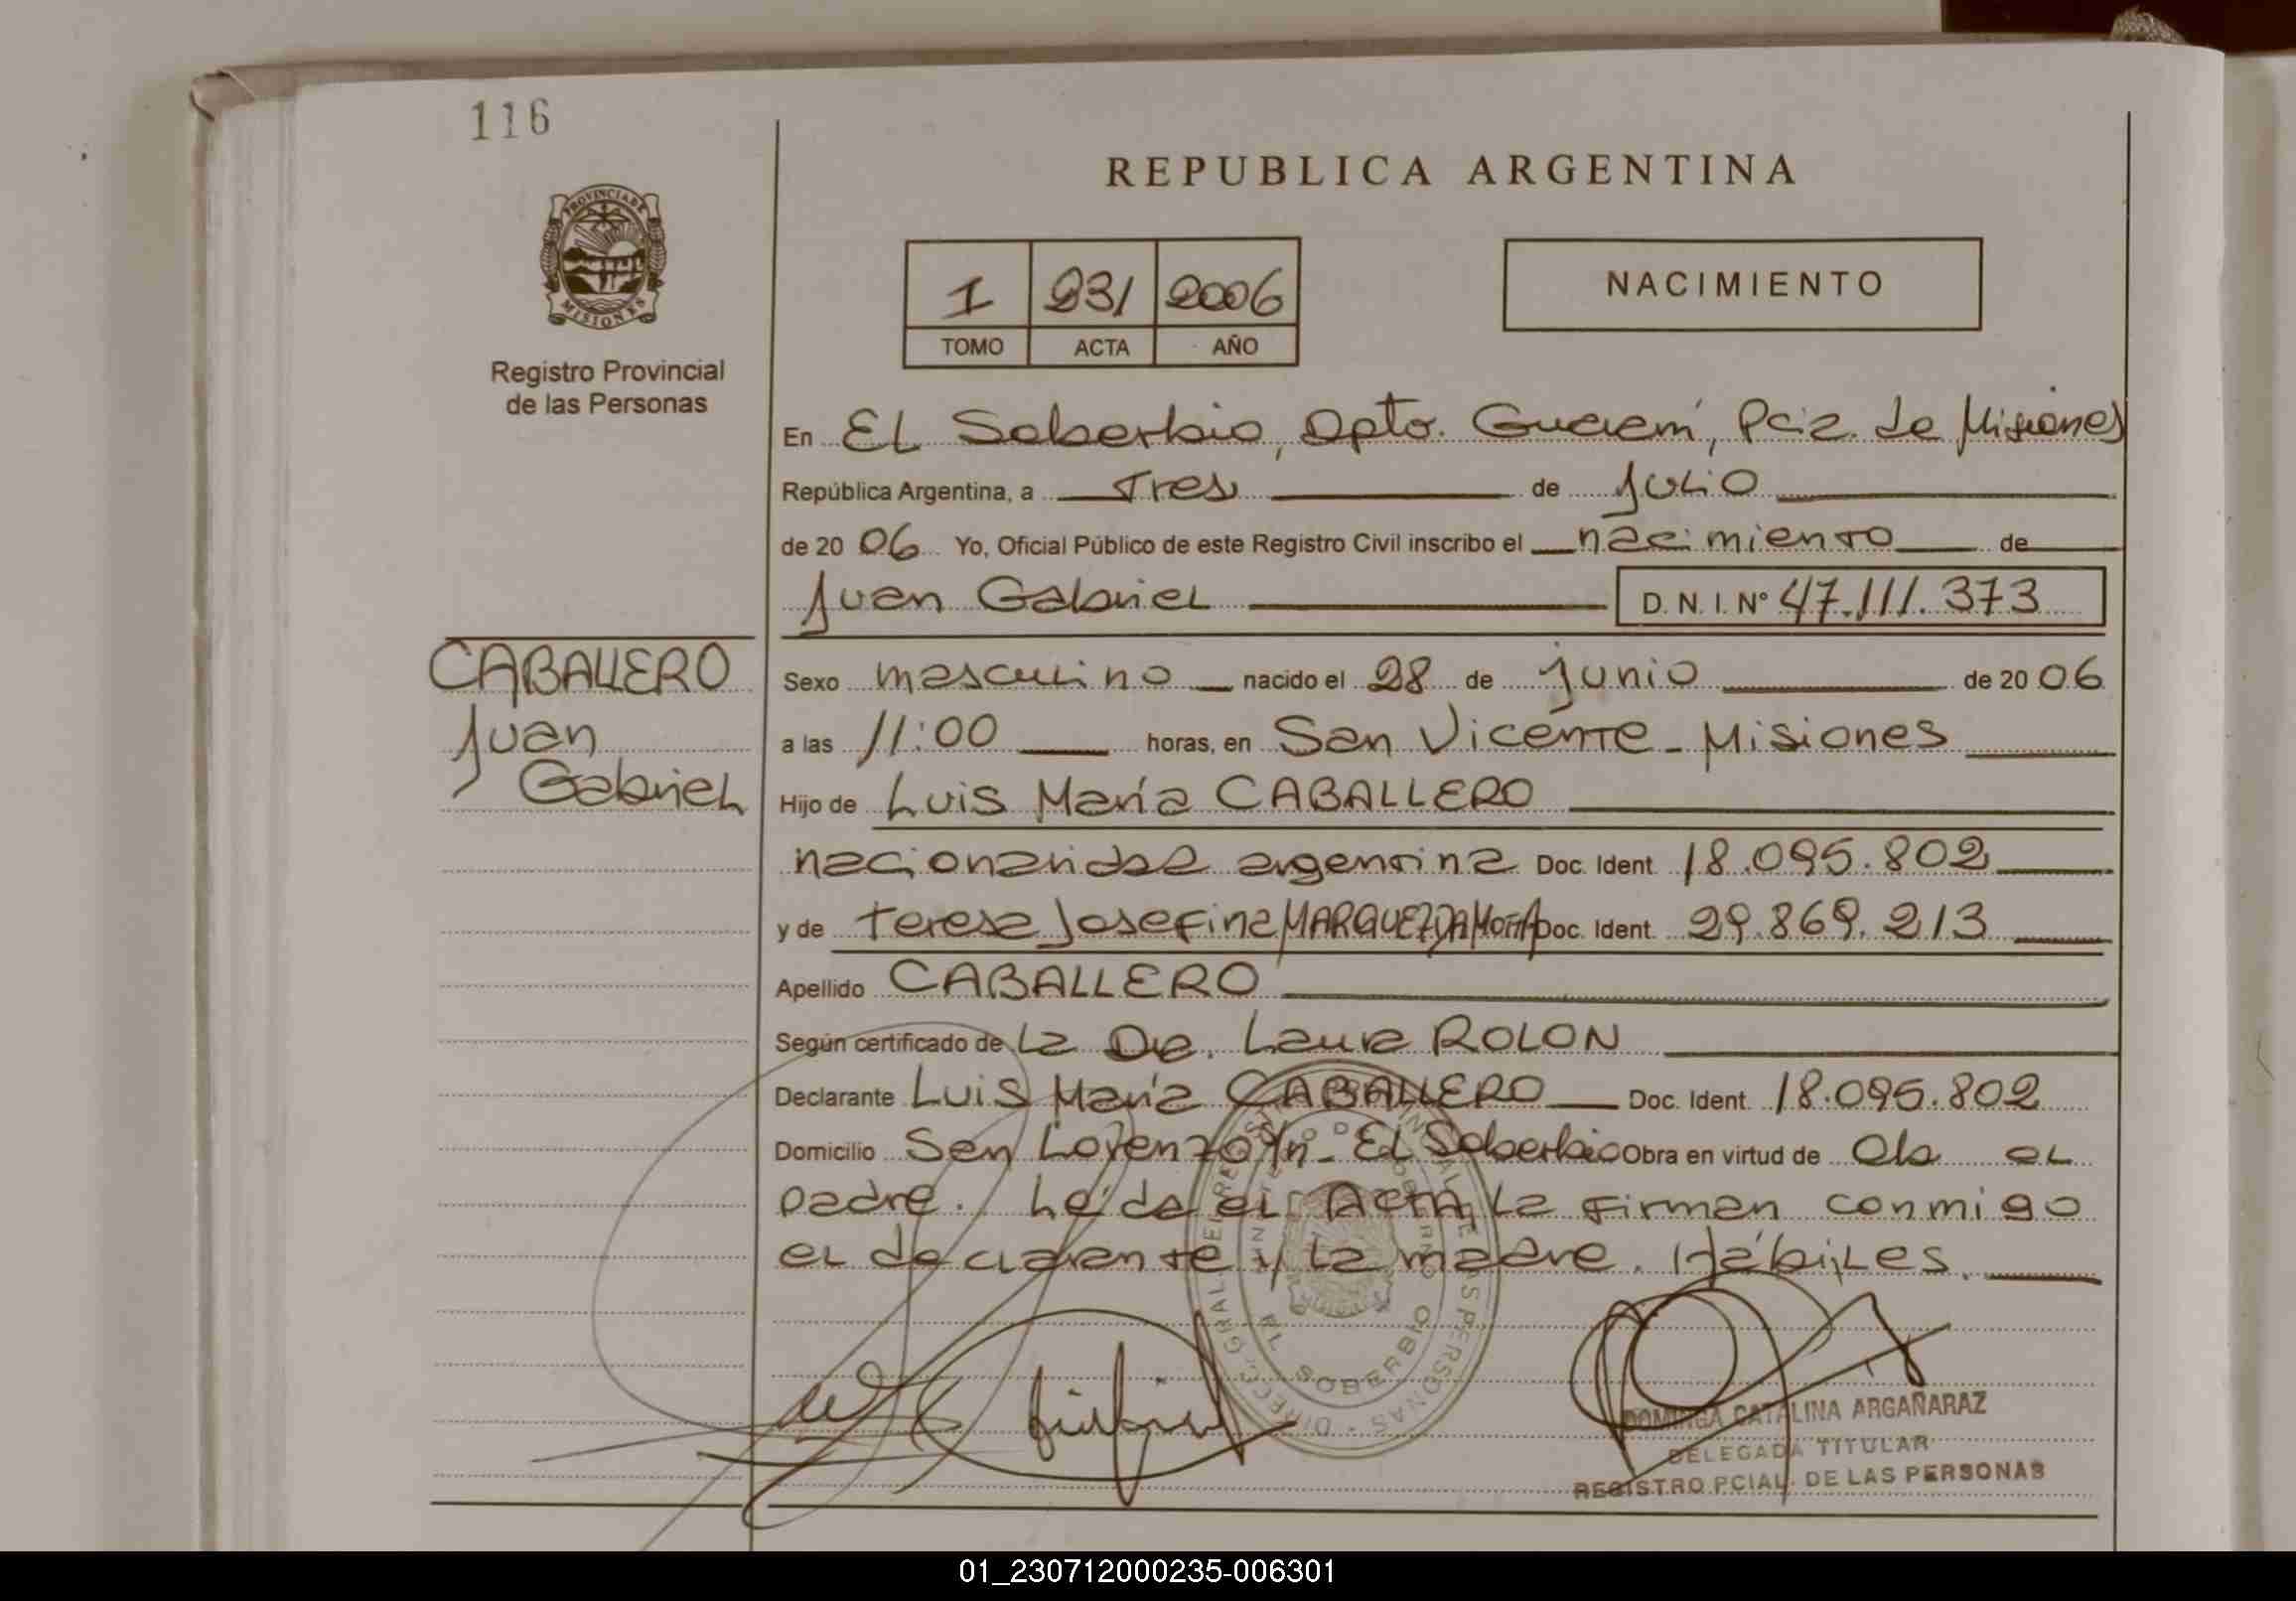 116
REPUBLICA ARGENTINA
PROVINCIA DE
MISIONES
Registro Provincial
de las Personas
1 231 2006
TOMO ACTA AÑO
NACIMIENTO
En El Soberbio, Dpto. Guaraní, Pcia. de Misiones
República Argentina, a Tres de julio
de 2006 Yo, Oficial Público de este Registro Civil inscribo el nacimiento de
Juan Gabriel D.N.I. Nº 47.111.373
CABALLERO
Juan
Gabriel
Sexo masculino nacido el 28 de junio de 2006
a las 11:00 horas, en San Vicente - Misiones
Hijo de Luis María CABALLERO
nacionalidad argentina Doc. Ident. 18.095.802
y de Teresa Josefina MARQUEZ DA MOTTA Doc. Ident. 29.869.213
Apellido CABALLERO
Según certificado de la Dra. Laura ROLON
Declarante Luis María CABALLERO Doc. Ident. 18.095.802
Domicilio San Lorenzo s/n - El Soberbio Obra en virtud de el
padre. Leída el Acta, la firman conmigo
el declarante y la madre. Hábiles.
EL SOBERBIO
DOMINGA CATALINA ARGAÑARAZ
DELEGADA TITULAR
REGISTRO PCIAL. DE LAS PERSONAS
01_230712000235-006301